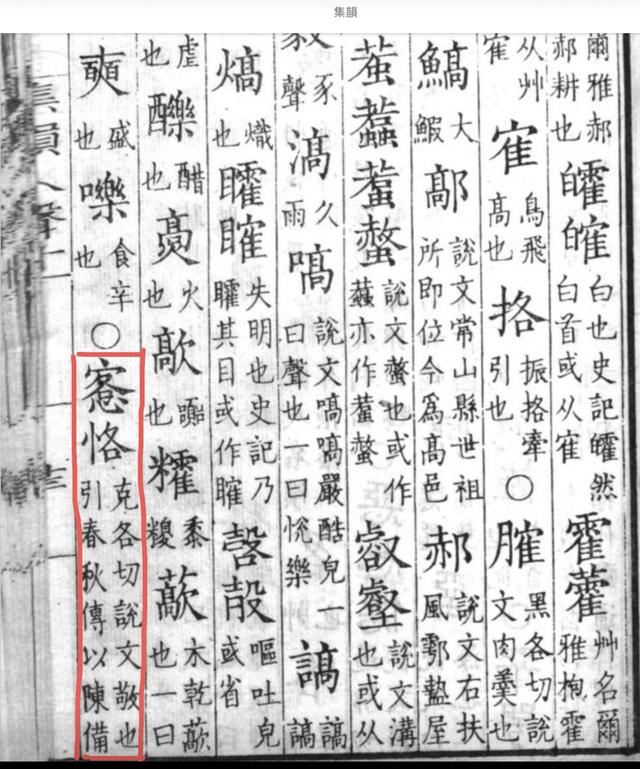 集韻
爾雅郝郝耕也皬㿥白也史記皬然白首或从隺靃藿艸名爾雅枸靃
从艸隺寉鳥飛高也挌振挌牽引也○䐨黑各切說文肉羹也
鰝大鰕鄗說文常山縣世祖所即位今為高邑郝說文右扶風鄠盩屋
蠚螫說文螫也或作蠚亦作螫㕡壑說文溝也或从
豕聲滈久雨嗃說文嗃嗃嚴酷皃一曰聲也一曰悅樂謞謞謞
熇熾也矐䁨失明也史記乃矐其目或作䁨嘔吐皃或省
虐也醋也火也歊也黍糉藃木乾藃也一曰
奭盛也嚛食辛也○愙恪克各切說文敬也引春秋傳以陳備
集韻入聲